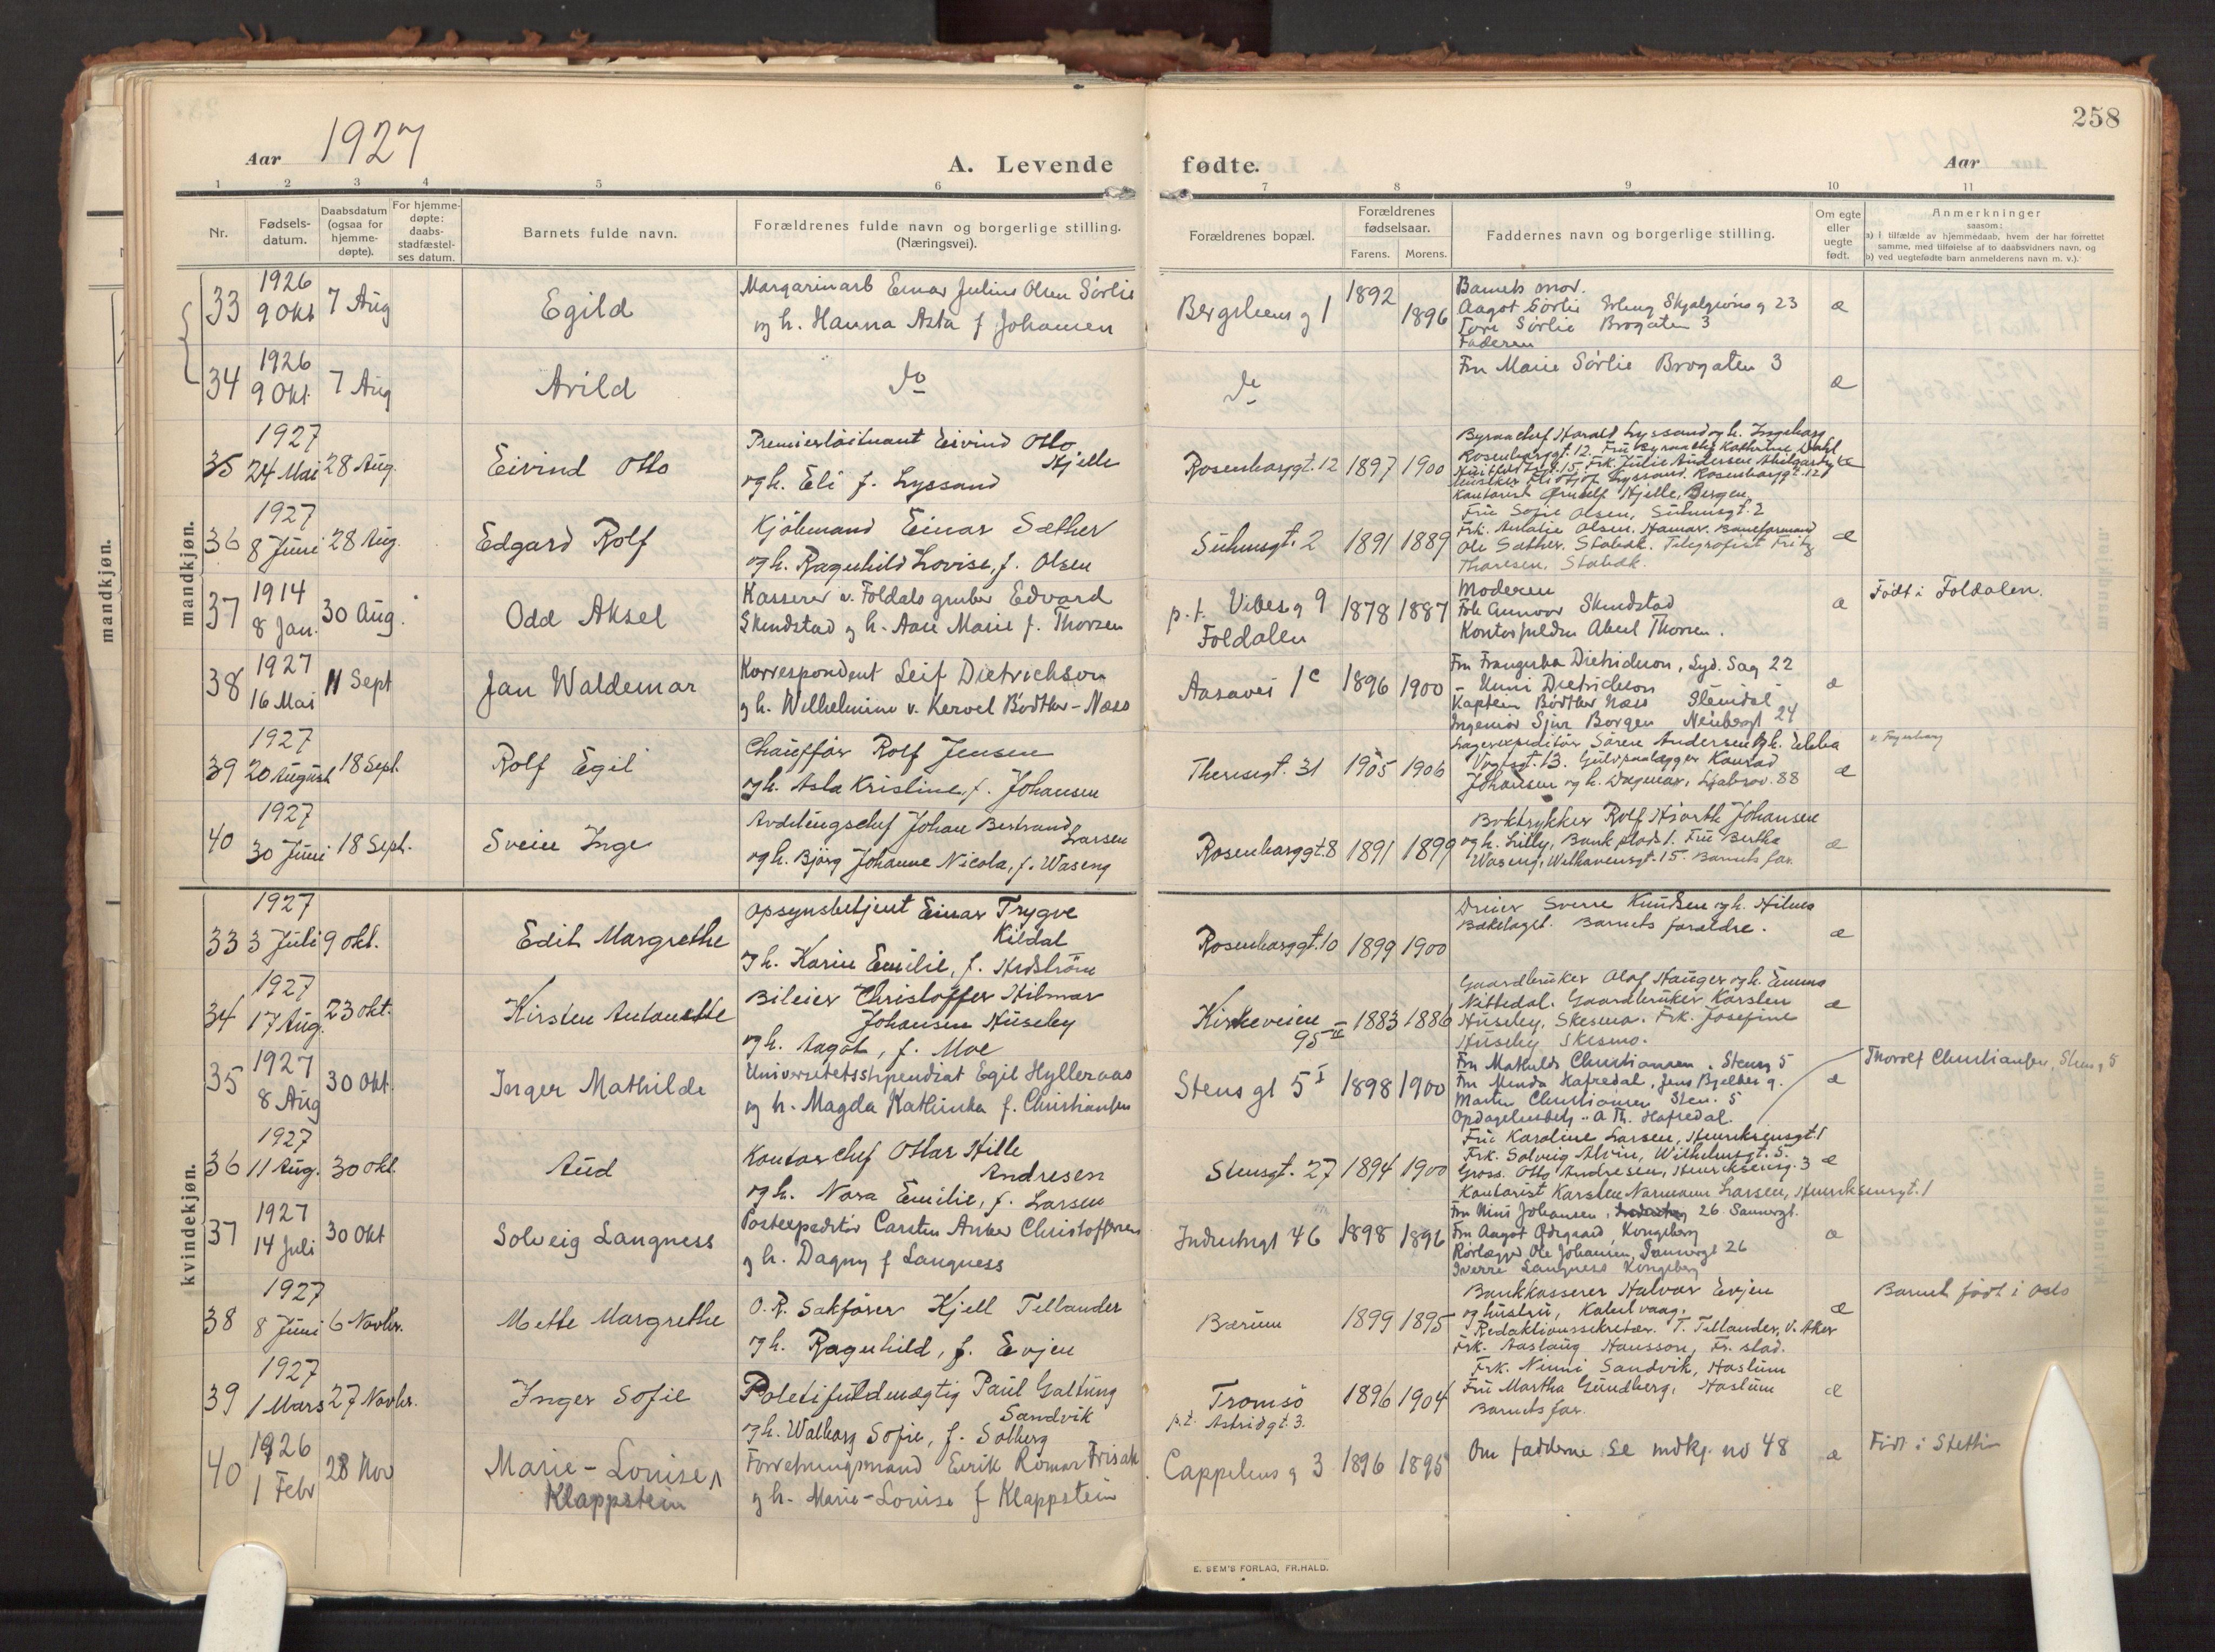 258
Aar 1927
A. Levende fødte.
Aar
1 2 3 4 5 6 7 8 9 10 11
Nr.
Fødsels-
datum.
Daabsdatum
(ogsaa for
hjemme-
døpte).
For hjemme-
døpte:
daabs-
stadfæstel-
ses datum.
Barnets fulde navn.
Forældrenes fulde navn og borgerlige stilling.
(Næringsvei).
Forældrenes bopæl.
Forældrenes
fødselsaar.
Farens. Morens.
Faddernes navn og borgerlige stilling.
Om egte
eller
uegte
født.
Anmerkninger
saasom:
a) I tilfælde av hjemmedaab, hvem der har forrettet
samme, med tilføielse af to daabsvidners navn, og
b) ved uegtefødte barn anmelderens navn m. v.).
mandkjøn.
mandkjøn.
33
1926
9 Okt
7 Aug
Egild
Margarinarb Einar Julius Olsen Sørlie
og h. Hanna Asta f Johansen
Bergsliens g 1
1892
1896
Barnets mor.
Aagot Sørlie Erling Skjalgsöns g 23
Sørlie Brogaten 3
Faderen
æ
34
1926
9 Okt.
7 Aug
Arild
do
do
Fru Marie Sørlie Brogaten 3
æ
35
1927
24 Mai
28 Aug.
Eivind Otto
Premierløitnant Eivind Otto
Hjelle
og h. Eli f. Lyssand
Rosenborggt. 12
1897
1900
Byraachef Harald Lyssand og h. Ingeborg
Rosenborggt. 12. Fru Katherine Dahl
15. Frk. Julie Andersen
Lyssand. Rosenborggt. 12
Kontorist Hjelle, Bergen.
æ
36
1927
8 Juni
28 Aug.
Edgard Rolf
Kjøbmand Einar Sæther
og h. Ragnhild Lovise, f. Olsen
Suhmsgt. 2
1891
1889
Fru Sofie Olsen, Suhmsgt. 2
Frk. Amalie Olsen. Hamar. Baneformand
Ole Sæther. Stabæk. Telegrafist Fritz
Thoresen, Stabæk.
æ
37
1914
8 Jan.
30 Aug.
Odd Aksel
Kasserer v. Foldals gruber Edvard
Skundstad og h. Aase Marie f. Thorsen
p. t. Vibesg 9
Foldalen
1878
1887
Moderen
Frk Gunvor Skundstad
Thorsen.
æ
Født i Foldalen.
38
1927
16 Mai
11 Sept
Jan Waldemar
Korrespondent Leif Dietrichson
og h. Wilhelmine v. Kervel Bødtker-Næss
Aasavei 1c
1896
1900
Fru Dietrichson, Lyd. Sag 22
- Unni Dietrichson
Kaptein Bødtker Næss Slemdal
Ingeniør Sjur Borgen Neubergt 24
æ
39
1927
20 August
18 Sept.
Rolf Egil
Chauffør Rolf Jensen
og h. Asta Kristine, f. Johansen
Theresegt. 31
1905
1906
Lagerexpeditør Sören Andersen og h. Ebba
Vogtsgt. 13. Gulvpaalægger Konrad
Johansen og h. Dagmar, 88
æ
40
1927
30 Juni
18 Sept.
Svein Inge
Avdelingschef Johan Bertrand
Larsen
og h. Bjørg Johanne Nicola, f. Waseng
Rosenborggt. 8
1891
1899
Boktrykker Rolf Hjorth Johansen
og h. Lilly, Bankplads 1. Fru Bertha
Waseng, Welhavensgt. 15. Barnets far.
æ
kvindekjøn.
33
1927
3 Juli
9 Okt.
Edit Margrethe
Opsynsbetjent Einar Trygve
Kildal
og h. Karin Emilie, f. Hedström
Rosenborggt. 10
1899
1900
Dreier Sverre Knudsen og h. Hilma
Bakelaget. Barnets forældre.
æ
34
1927
17 Aug.
23 Okt.
Kirsten Antonette
Bileier Christoffer Hilmar
Johansen Huseby
og h. Aagot, f. Moe
Kirkeveien
95 II
1883
1886
Gaardbruker Olaf Hauger og h. Emma
Nittedal. Gaardbruker Karsten
Huseby, Skesmo. Frk. Josefine
Huseby Skesmo.
æ
35
1927
8 Aug
30 Okt.
Inger Mathilde
Universitetsstipendiat Egil Hylleraas
og h. Magda Kathinka f. Christiansen
Stens gt 5 I
1898
1900
Fru Mathilde Christiansen. Stensg 5
Fru Hafredal, Jens Bjelkes g.
Martin Christiansen Sten. 5
A Th. Hafredal.
æ
Thorolf Christiansen, Stensg 5
36
1927
11 Aug.
30 Okt.
Aud
Kontorchef Ottar Hille
Andresen
og h. Nora Emilie, f. Larsen
Stensgt. 27
1894
1900
Fru Karoline Larsen, Henriksensgt. 1
Frk. Solveig Wilhelmsgt. 5.
Gross. Otto Andresen, Henriksensg. 3
Kontorist Karsten Normann Larsen, Henriksensgt. 1
æ
37
1927
14 Juli
30 Okt
Solveig Langness
Postexpeditør Carsten Anker Christoffersen
og h. Dagny f Langness
Industrigt 46
1898
1896
Fru Johansen, 26 Sannergt.
Fru Aagot Kongsberg
Rørlægger Ole Johansen, Sannergt 26
Sverre Langness Kongsberg
æ
38
1927
8 Juni
6 Novbr.
Mette Margrethe
O. R. Sakfører Kjell Tellander
og h. Ragnhild, f. Evjen
Bærum
1899
1895
Bankkasserer Halvar Evjen
og hustru, Kabelvaag.
Redaktionssekretær. T. Tellander, V. Aker
Frk. Aaslaug Hansson, Fr. stad.
æ
Barnet født i Oslo
39
1927
1 Mars
27 Novbr.
Inger Sofie
Politifuldmægtig Paul Galtung
Sandvik
og h. Walborg Sofie, f. Solberg
Tromsö
p.t. Astridgt. 3.
1896
1904
Frk. Ninni Sandvik, Haslum
Fru Martha Gundberg, Haslum
Barnets far.
æ
40
1926
1 Febr
28 Nov
Marie-Louise
Klappstein
Forretningsmand Eirik Romar Frisak
og h. Marie-Louise f Klappstein
Cappelens g 3
1896
1895
Om fadderne se mdkj. no 48
æ
Født i Stettin
E. SEM'S FORLAG, FR.HALD.